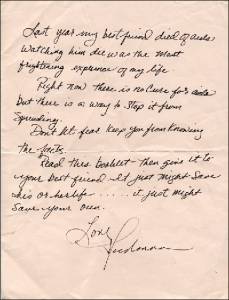 Last year my best friend died of aids
Watching him die was the most
frightening experience of my life
Right now there is no Cure for aids
but there is a way to Stop it from
Spreading.
Don't let fear Keep you from Knowing
the facts.
Read this booklet then give it to
your best friend it just might Save
his or her life ..... it just might
Save your own.
Love